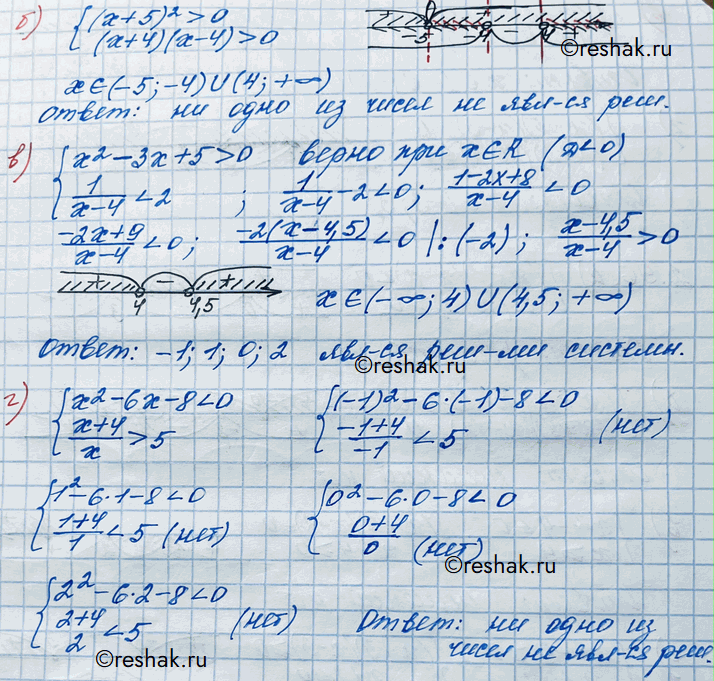 б) { (x+5)² > 0
(x+4)(x-4) > 0
-5 -4 4
x ∈ (-5; -4) ∪ (4; +∞)
©reshak.ru
Ответ: ни одно из чисел не явл-ся реш.
в) { x² - 3x + 5 > 0 верно при x ∈ R (D < 0)
1/(x-4) < 2 ; 1/(x-4) - 2 < 0; (1-2x+8)/(x-4) < 0
(-2x+9)/(x-4) < 0; (-2(x-4,5))/(x-4) < 0 |:(-2); (x-4,5)/(x-4) > 0
+ - +
4 4,5
x ∈ (-∞; 4) ∪ (4,5; +∞)
Ответ: -1; 1; 0; 2 явл-ся реш-ми системы.
©reshak.ru
г) { x² - 6x - 8 < 0 { (-1)² - 6·(-1) - 8 < 0
(x+4)/x > 5 (-1+4)/(-1) < 5 (нет)
{ 1² - 6·1 - 8 < 0 { 0² - 6·0 - 8 < 0
(1+4)/1 < 5 (нет) (0+4)/0 (нет)
©reshak.ru
{ 2² - 6·2 - 8 < 0
(2+4)/2 < 5 (нет) Ответ: ни одно из
чисел не явл-ся реш.
©reshak.ru